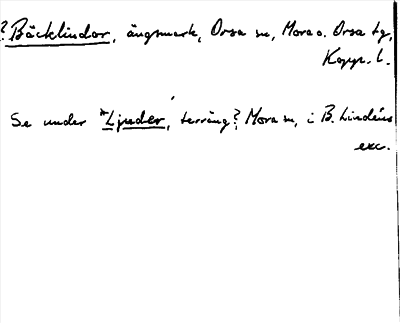 ? Bäcklindor, ängsmark, Orsa sn, Mora o. Orsa tg,
Kopp. l.
Se under *Ljuder, terräng?, Mora sn, i B. Lindéns
exc.